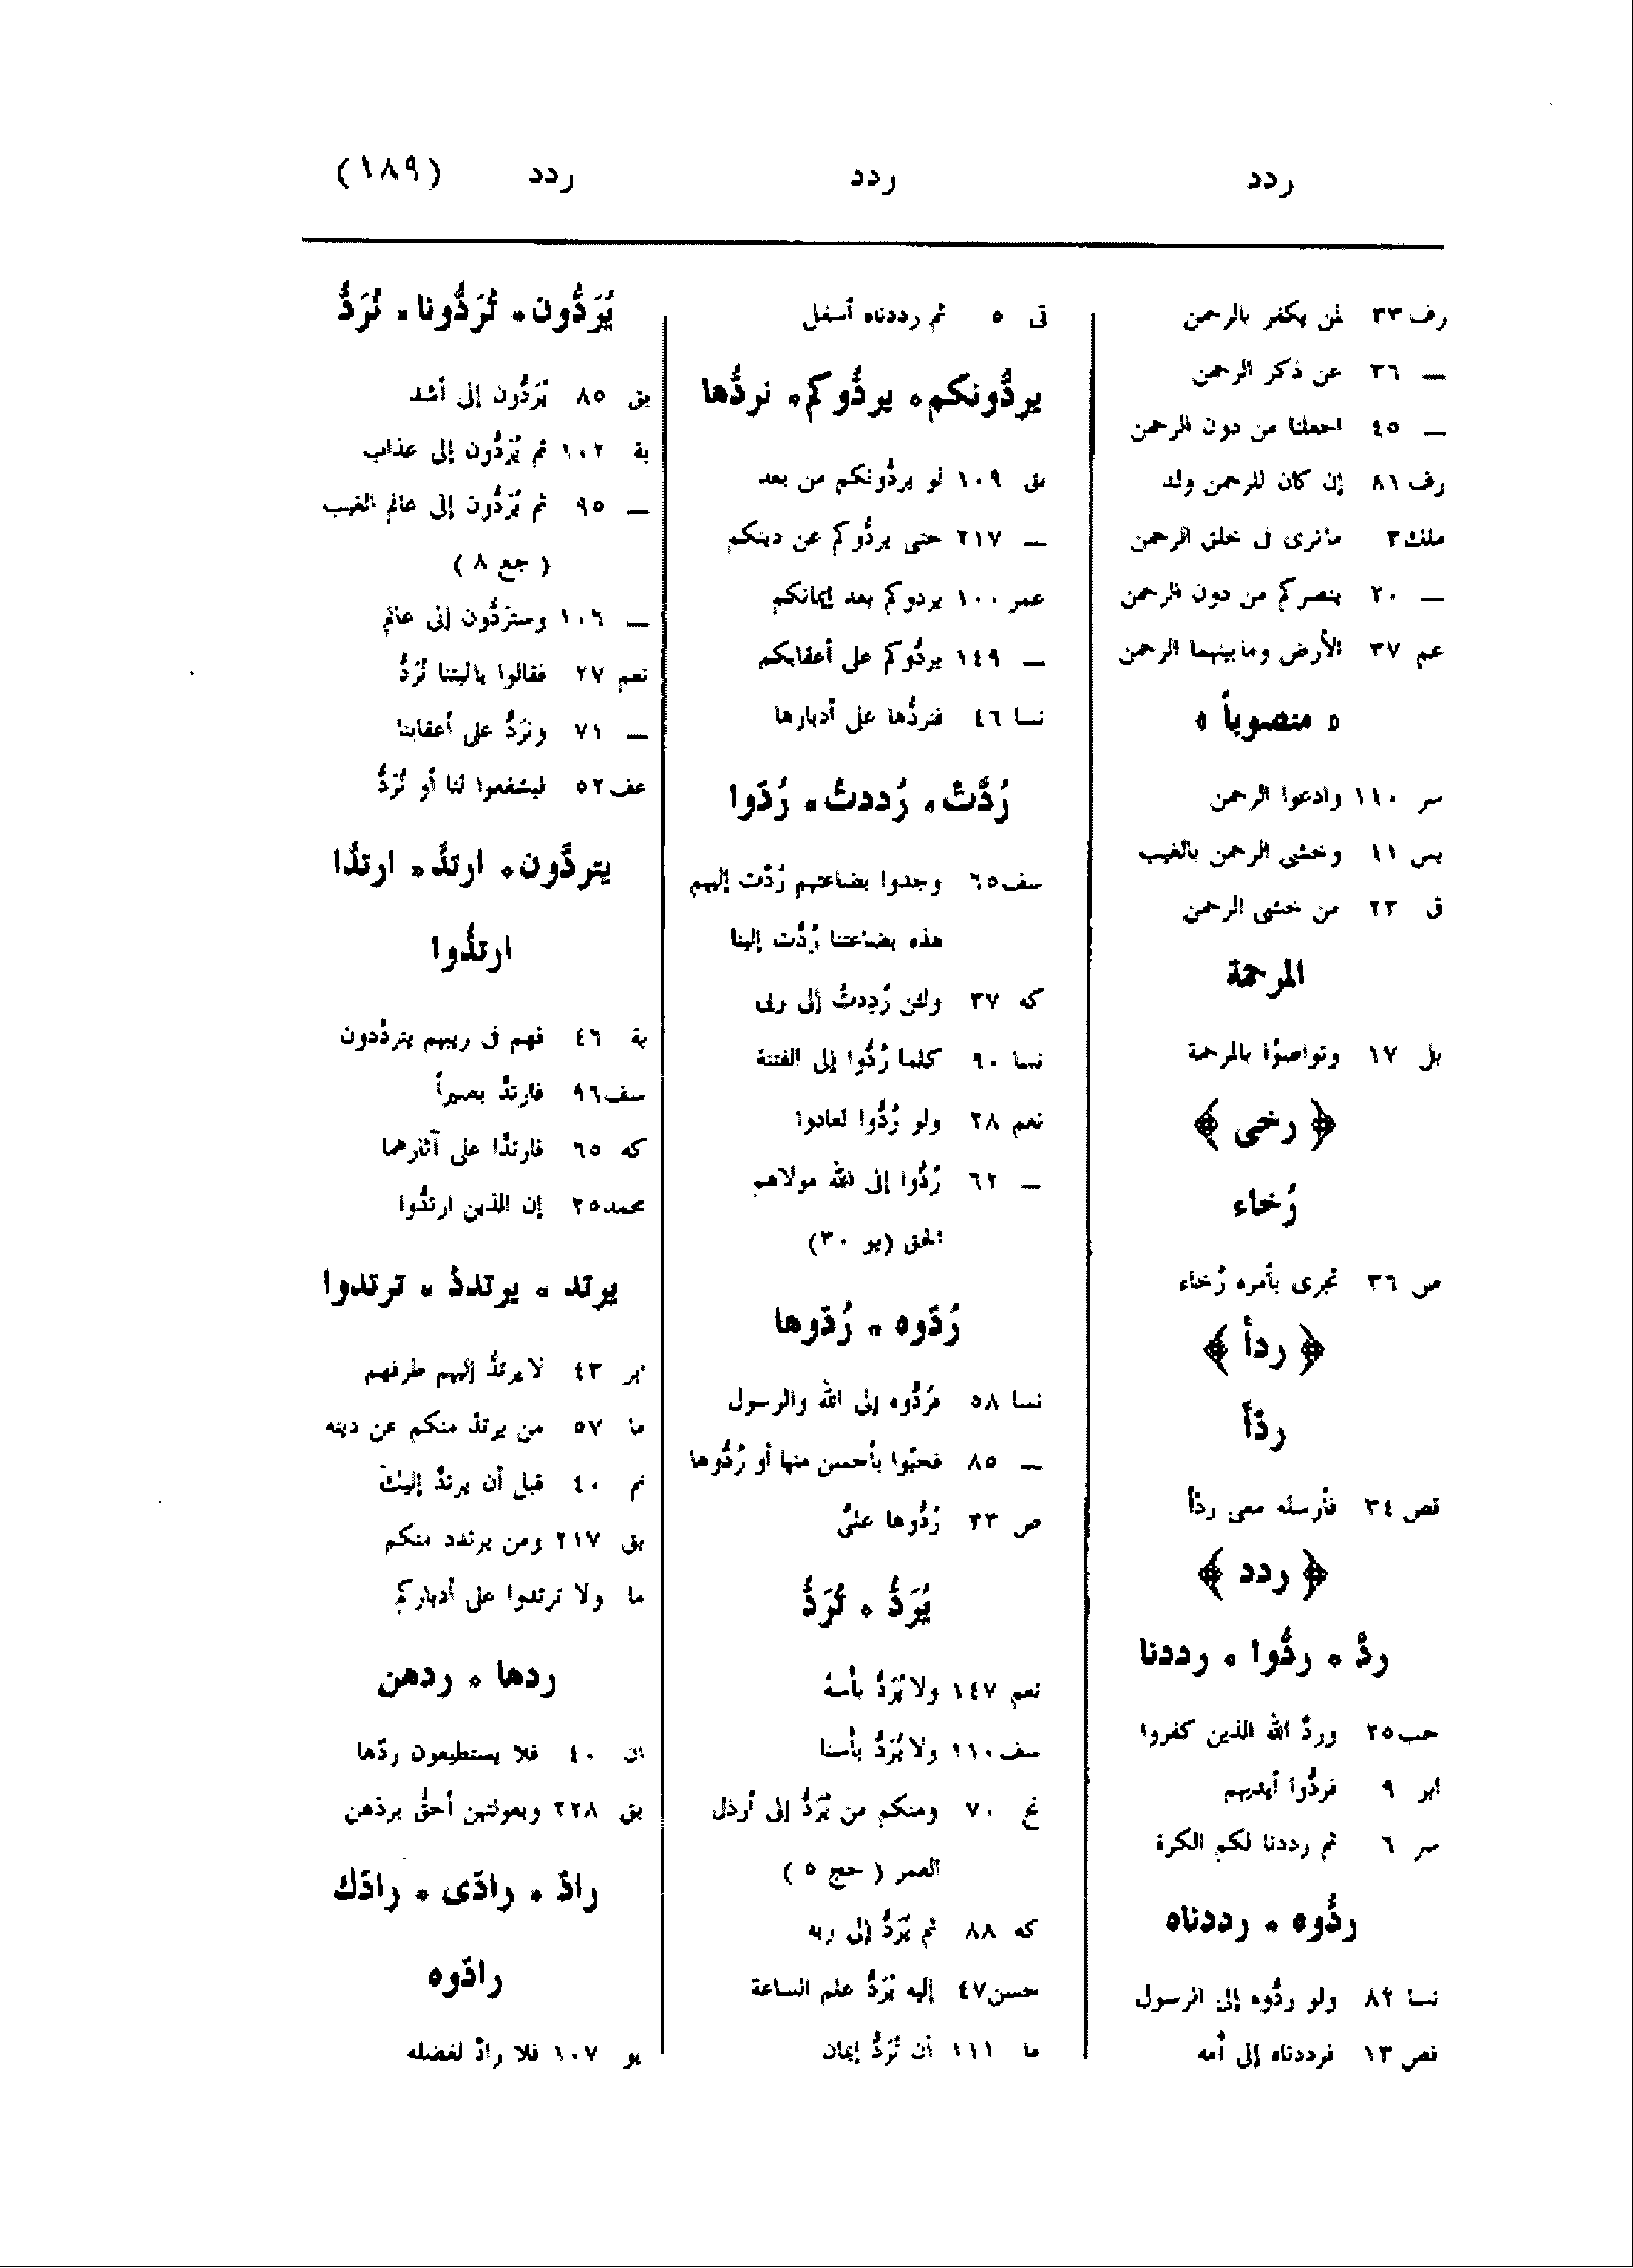 ردد
ردد
ردد
(١٨٩)
رف ٣٣ لمن يكفر بالرحمن
ــ ٣٦ عن ذكر الرحمن
ــ ٤٥ اجعلنا من دون الرحمن
رف ٨١ إن كان للرحمن ولد
ملك ٣ ماترى فى خلق الرحمن
ــ ٢٠ ينصركم من دون الرحمن
عم ٣٧ الأرض ومابينهما الرحمن
٥ منصوباً ٥
سر ١١٠ وادعوا الرحمن
يس ١١ وخشى الرحمن بالغيب
ق ٣٣ من خشى الرحمن
المرحمة
بل ١٧ وتواصوْا بالمرحمة
﴿ رخى ﴾
رُخاء
ص ٣٦ تجرى بأمره رُخاء
﴿ ردأ ﴾
ردْأ
قص ٣٤ فأرسله معى ردْأ
﴿ ردد ﴾
ردَّ ٥ ردُّوا ٥ رددنا
حب ٢٥ وردَّ الله الذين كفروا
ابر ٩ فردُّوا أيديهم
سر ٦ ثم رددنا لكم الكرة
ردُّوه ٥ رددناه
نسا ٨٢ ولو ردُّوه إلى الرسول
قص ١٣ فرددناه إلى أُمه
تى ٥ ثم رددناه أسفل
يردُّونكم ٥ يردُّوكم ٥ نردُّها
بق ١٠٩ لو يردُّونكم من بعد
ــ ٢١٧ حتى يردُّوكم عن دينكم
عمر ١٠٠ يردوكم بعد إيمانكم
ــ ١٤٩ يردُّوكم على أعقابكم
نسا ٤٦ فنردُّها على أدبارها
رُدَّتْ ٥ رُددتُ ٥ رُدّوا
سف ٦٥ وجدوا بضاعتهم رُدَّت إليهم
هذه بضاعتنا رُدَّت إلينا
كه ٣٧ ولئن رُدِدتُّ إلى ربى
نسا ٩٠ كلما رُدُّوا إلى الفتنة
نعم ٢٨ ولو رُدُّوا لعادوا
ــ ٦٢ رُدُّوا إلى الله مولاهم
الحق (يو ٣٠)
رُدّوه ٥ رُدّوها
نسا ٥٨ فرُدُّوه إلى الله والرسول
ــ ٨٥ فحيّوا بأحسن منها أو رُدُّوها
ص ٣٣ رُدُّوها علىَّ
يُرَدُّ ٥ تُرَدُّ
نعم ١٤٧ ولا يُرَدُّ بأسهُ
سف ١١٠ ولا يُرَدُّ بأسنا
نح ٧٠ ومنكم من يُرَدُّ إلى أرذل
العمر ( حج ٥ )
كه ٨٨ ثم يُرَدُّ إلى ربه
حسن ٤٧ إليه يُرَدُّ علم الساعة
ما ١١١ أن تُرَدَّ إيمان
يُرَدُّون ٥ تُرَدُّونا ٥ نُرَدُّ
بق ٨٥ يُرَدُّون إلى أشد
بة ١٠٢ ثم يُرَدُّون إلى عذاب
ــ ٩٥ ثم تُرَدُّون إلى عالم الغيب
( جمع ٨ )
ــ ١٠٦ وستُرَدُّون إلى عالم
نعم ٢٧ فقالوا ياليتنا نُرَدُّ
ــ ٧١ ونرَدُّ على أعقابنا
عف ٥٢ فيشفعوا لنا أو نُرَدُّ
يتردَّدون ٥ ارتدَّ ٥ ارتدَّا
ارتدُّوا
بة ٤٦ فهم فى ريبهم يتردَّدون
سف ٩٦ فارتدَّ بصيراً
كه ٦٥ فارتدَّا على آثارهما
محمد ٢٥ إن الذين ارتدُّوا
يرتد ٥ يرتددْ ٥ ترتدوا
ابر ٤٣ لا يرتدُّ إليهم طرفهم
ما ٥٧ من يرتدَّ منكم عن دينه
نم ٤٠ قبل أن يرتدَّ إليكَ
بق ٢١٧ ومن يرتدد منكم
ما ولا ترتدوا على أدباركم
ردها ٥ ردهن
ان ٤٠ فلا يستطيعون ردّها
بق ٢٢٨ وبعولتهن أحقُّ بردّهن
رادّ ٥ رادّى ٥ رادّك
رادّوه
يو ١٠٧ فلا رادَّ لفضله